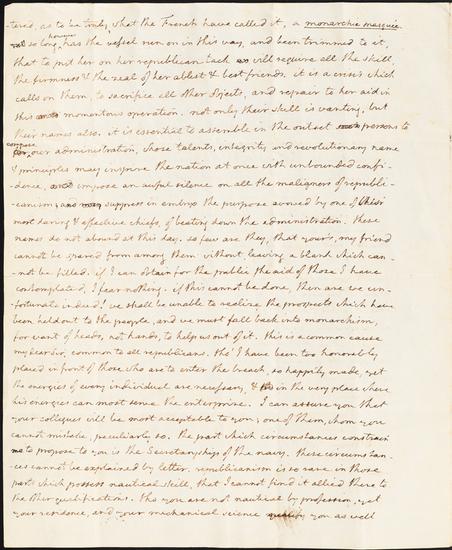 -tered, as to be truly, what the French have called it, a monarchie masquée.
so long however has the vessel run on in this way, and been trimmed to it,
that to put her on her republican tack will require all the skill,
the firmness & the zeal of her ablest & best friends. it is a crisis which
calls on them, to sacrifice all other objects, and repair to her aid in
this momentous operation. not only their skill is wanting, but
their names also. it is essential to assemble in the outset persons to
compose our administration, whose talents, integrity and revolutionary name
& principles may inspire the nation at once with unbounded confi-
-dence, impose an awful silence on all the maligners of republi-
-canism, suppress in embryo the purpose avowed by one of their
most daring & effective chiefs, of beating down the administration. these
names do not abound at this day. so few are they, that your's, my friend
cannot be spared from among them without leaving a blank which can-
-not be filled. if I can obtain for the public the aid of those I have
contemplated, I fear nothing. if this cannot be done, then are we un-
-fortunate indeed! we shall be unable to realize the prospects which have
been held out to the people, and we must fall back into monarchism,
for want of heads, not hands, to help us out of it. this is a common cause
my dear Sir, common to all republicans. tho' I have been too honorably
placed in front of those who are to enter the breach, so happily made, yet
the energies of every individual are necessary, & in the very place where
his energies can most serve the enterprize. I can assure you that
your collegues will be most acceptable to you; one of them, whom you
cannot mistake, peculiarly so. the part which circumstances constrain
me to propose to you is the Secretaryship of the navy. these circumstan-
-ces cannot be explained by letter. republicanism is so rare in those
parts which possess nautical skill, that I cannot find it allied there to
the other qualifications. tho you are not nautical by profession, yet
your residence, and your mechanical science qualify you as well